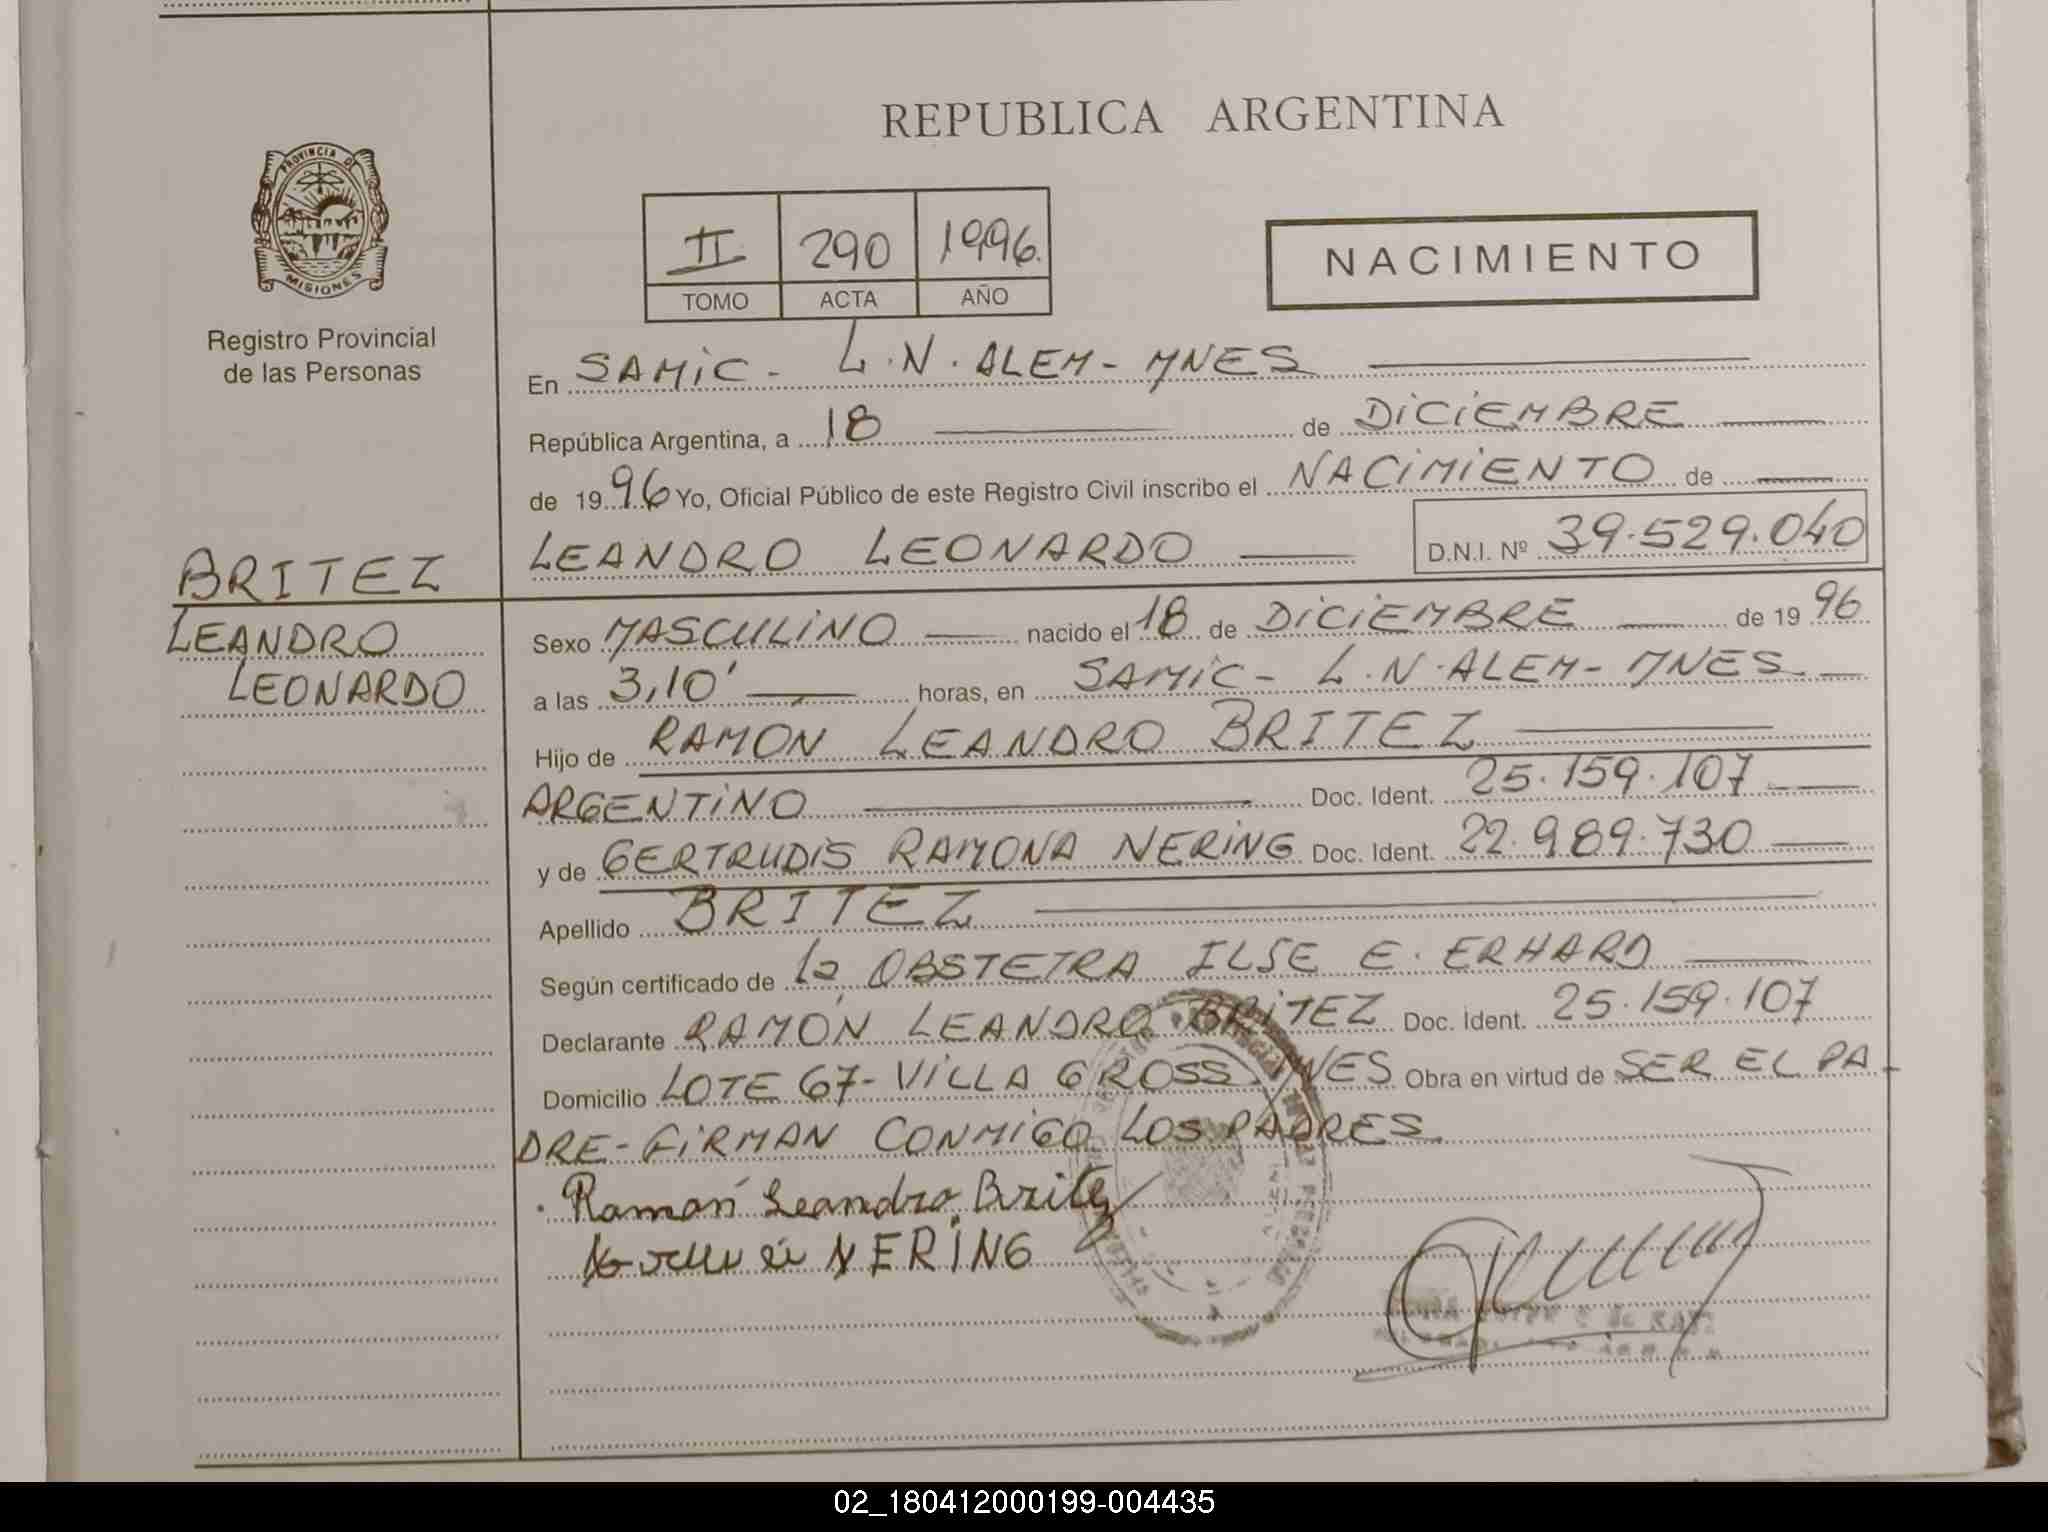 REPUBLICA ARGENTINA
PROVINCIA DE
MISIONES
Registro Provincial
de las Personas
II 290 1996.
TOMO ACTA AÑO
NACIMIENTO
En SAMIC - L.N. ALEM - MNES
República Argentina, a 18 de DICIEMBRE
de 1996 Yo, Oficial Público de este Registro Civil inscribo el NACIMIENTO de
LEANDRO LEONARDO D.N.I. Nº 39.529.040
BRITEZ
LEANDRO
LEONARDO
Sexo MASCULINO nacido el 18 de DICIEMBRE de 1996
a las 3,10' horas, en SAMIC - L.N. ALEM - MNES
Hijo de RAMÓN LEANDRO BRITEZ
ARGENTINO Doc. Ident. 25.159.107
y de GERTRUDIS RAMONA NERING Doc. Ident. 22.989.730
Apellido BRITEZ
Según certificado de la OBSTETRA ILSE E. ERHARD
Declarante RAMÓN LEANDRO BRITEZ Doc. Ident. 25.159.107
Domicilio LOTE 67 - VILLA GROSS MNES Obra en virtud de SER EL PA-
DRE - FIRMAN CONMIGO LOS PADRES
Ramón Leandro Britez
NERING
02_180412000199-004435